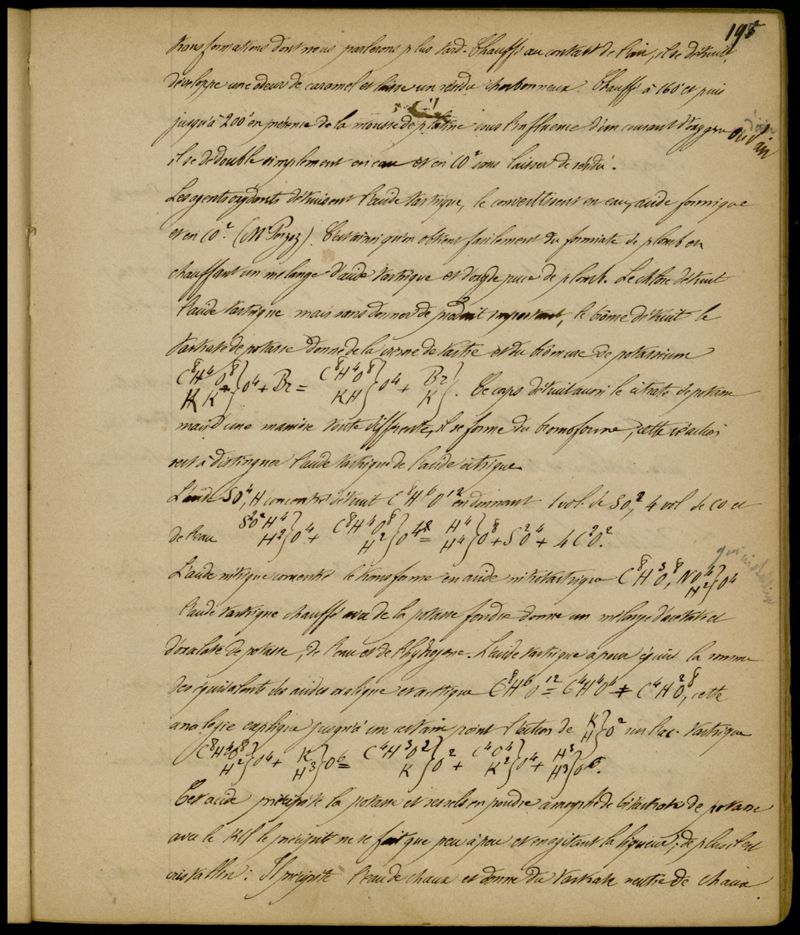 195
transformations dont nous parlerons plus tard. Chauffé au contact de l'air, il se détruit,
développe une odeur de caramel et laisse un résidu charbonneux. Chauffé à 160° et puis
jusqu'à 200° en présence de la mousse de platine sous l'influence d'un courant d'oxygène
il se dédouble simplement en eau et en CO² sans laisser de résidu.
Les agents oxydants détruisent l'acide tartrique, le convertissent en eau, acide formique
et en CO². (Mr Persoz). C'est ainsi qu'on obtient facilement du formiate de plomb en
chauffant un mélange d'acide tartrique et d'oxyde puce de plomb. Le chlore détruit
l'acide tartrique mais sans donner de produit important, le brôme détruit le
tartrate de potasse donne de la crème de tartre et du brômure de potassium
C⁸H⁴O⁸ / K K } O⁴ + Br = C⁸H⁴O⁸ / KH } O⁴ + Br / K }. Ce corps détruit aussi le citrate de potasse
mais d'une manière toute différente, il se forme du bromoforme, cette réaction
sert à distinguer l'acide tartrique de l'acide citrique.
L'acide SO⁴,H concentré détruit C⁸H⁶O¹² en donnant 1 vol. de SO², 4 vol de CO et
de l'eau S²O²H⁴ / H² } O⁴ + C⁸H⁴O⁸ / H² } O⁴ = H⁴ / H⁴ } O⁸ + S²O⁴ + 4C²O².
L'acide nitrique concentré le transforme en acide nitrotartrique C⁸H³O⁸, NO⁴ / H² } O⁴
L'acide tartrique chauffé avec de la potasse fondue donne un mélange d'acétate et
d'oxalate de potasse, de l'eau et de l'hydrogène. L'acide tartrique a pour équiv. la somme
des équivalents des acides oxalique et acétique C⁸H⁶O¹² = C⁴H⁴O⁴ + C⁴H²O⁸, cette
analogie explique jusqu'à un certain point l'action de K / H } O² sur l'ac. tartrique
C⁸H⁴O⁸ / H² } O⁴ + K³ / H³ } O⁶ = C⁴H³O² / K } O² + C⁴O⁴ / K² } O⁴ + H³ / H³ } O⁶.
Cet acide précipite la potasse et ses sels en poudre amorphe de bitartrate de potasse
avec le KCl le précipité ne se fait que peu à peu et en agitant la liqueur; de plus il est
cristallin. Il précipite l'eau de chaux et donne du tartrate neutre de chaux.